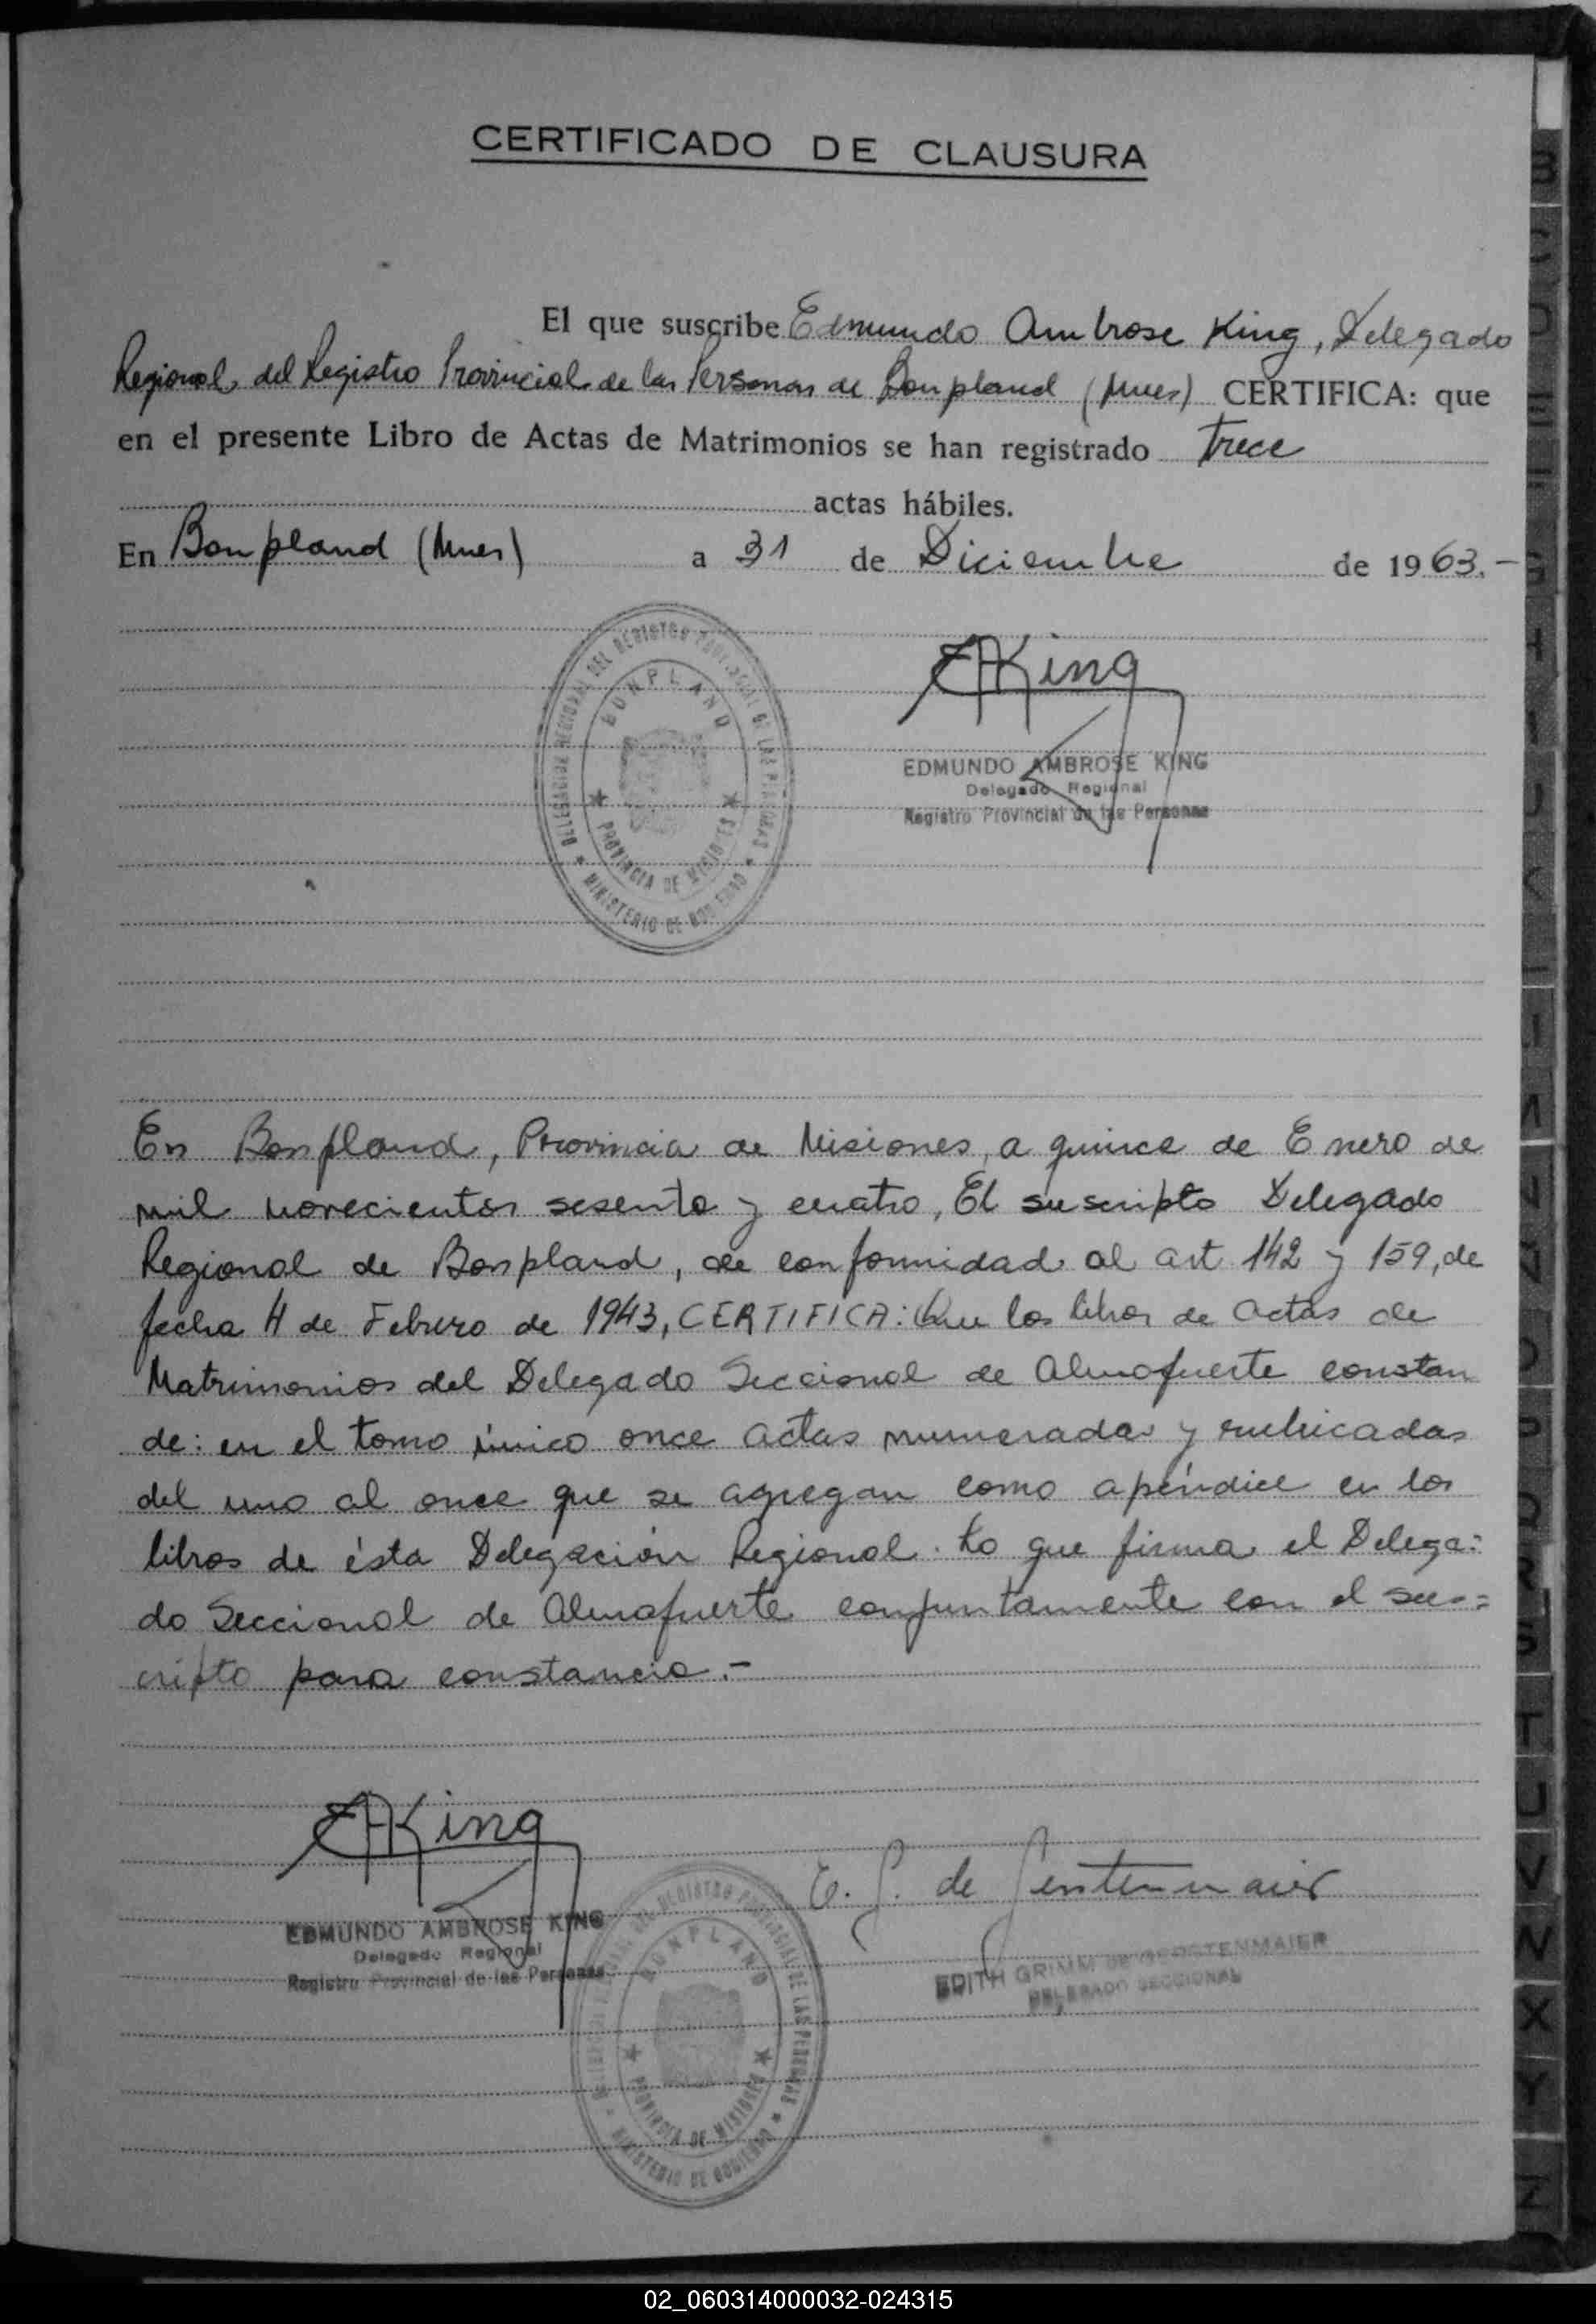 CERTIFICADO DE CLAUSURA
El que suscribe Edmundo Ambrose King, Delegado
Regional del Registro Provincial de las Personas de Bonpland (Mnes) CERTIFICA: que
en el presente Libro de Actas de Matrimonios se han registrado trece
actas hábiles.
En Bonpland (Mnes) a 31 de Diciembre de 1963.-
DELEGACION REGIONAL DEL REGISTRO PROVINCIAL DE LAS PERSONAS
BONPLAND
PROVINCIA DE MISIONES
MINISTERIO DE GOBIERNO
EAKing
EDMUNDO AMBROSE KING
Delegado Regional
Registro Provincial de las Personas
En Bonpland, Provincia de Misiones, a quince de Enero de
mil novecientos sesenta y cuatro, El suscripto Delegado
Regional de Bonpland, de conformidad al art 142 y 159, de
fecha 4 de Febrero de 1943, CERTIFICA: Que los libros de actas de
Matrimonios del Delegado Seccional de Almafuerte constan
de: en el tomo único once actas numeradas y rubricadas
del uno al once que se agregan como apéndice en los
libros de ésta Delegación Regional. Lo que firma el Delega=
do Seccional de Almafuerte conjuntamente con el sus=
cripto para constancia.-
EAKing
EDMUNDO AMBROSE KING
Delegado Regional
Registro Provincial de las Personas
REGISTRO PROVINCIAL DE LAS PERSONAS
BONPLAND
PROVINCIA DE MISIONES
MINISTERIO DE GOBIERNO
E. G. de Gerstenmaier
EDITH GRIMM DE GERSTENMAIER
DELEGADO SECCIONAL
B
C
D
E
F
G
H
I
J
K
L
M
N
O
P
Q
R
S
T
U
V
W
X
Y
Z
02_060314000032-024315